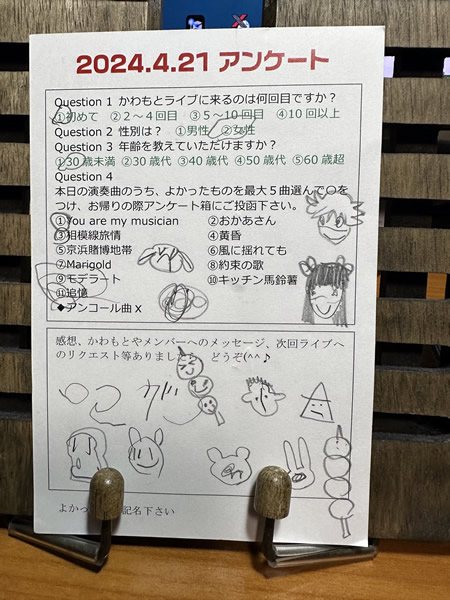 2024.4.21 アンケート
Question 1 かわもとライブに来るのは何回目ですか?
①初めて ②2～4回目 ③5～10回目 ④10回以上
Question 2 性別は? ①男性 ②女性
Question 3 年齢を教えていただけますか?
①30歳未満 ②30歳代 ③40歳代 ④50歳代 ⑤60歳超
Question 4
本日の演奏曲のうち、よかったものを最大5曲選んで○を
つけ、お帰りの際アンケート箱にご投函下さい。
①You are my musician ②おかあさん
③相模線旅情 ④黄昏
⑤京浜賭博地帯 ⑥風に揺れても
⑦Marigold ⑧約束の歌
⑨モデラート ⑩キッチン馬鈴薯
⑪追憶
◆アンコール曲x
感想、かわもとやメンバーへのメッセージ、次回ライブへ
のリクエスト等ありまし どうぞ(^^♪
よかっ 記名下さい